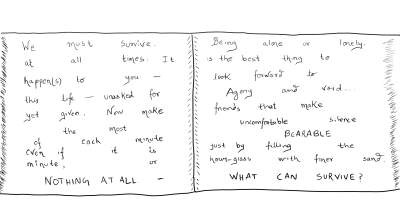 We must survive.
at all times. It
happen(s) to you –
this life – unasked for
yet given. Now make
the most
of each minute
even if it is
minute, or
NOTHING AT ALL –
Being alone or lonely.
is the best thing to
look forward to
Agony and void...
friends that make
uncomfortable silence
BEARABLE
just by filling the
hour-glass with finer sand.
WHAT CAN SURVIVE?